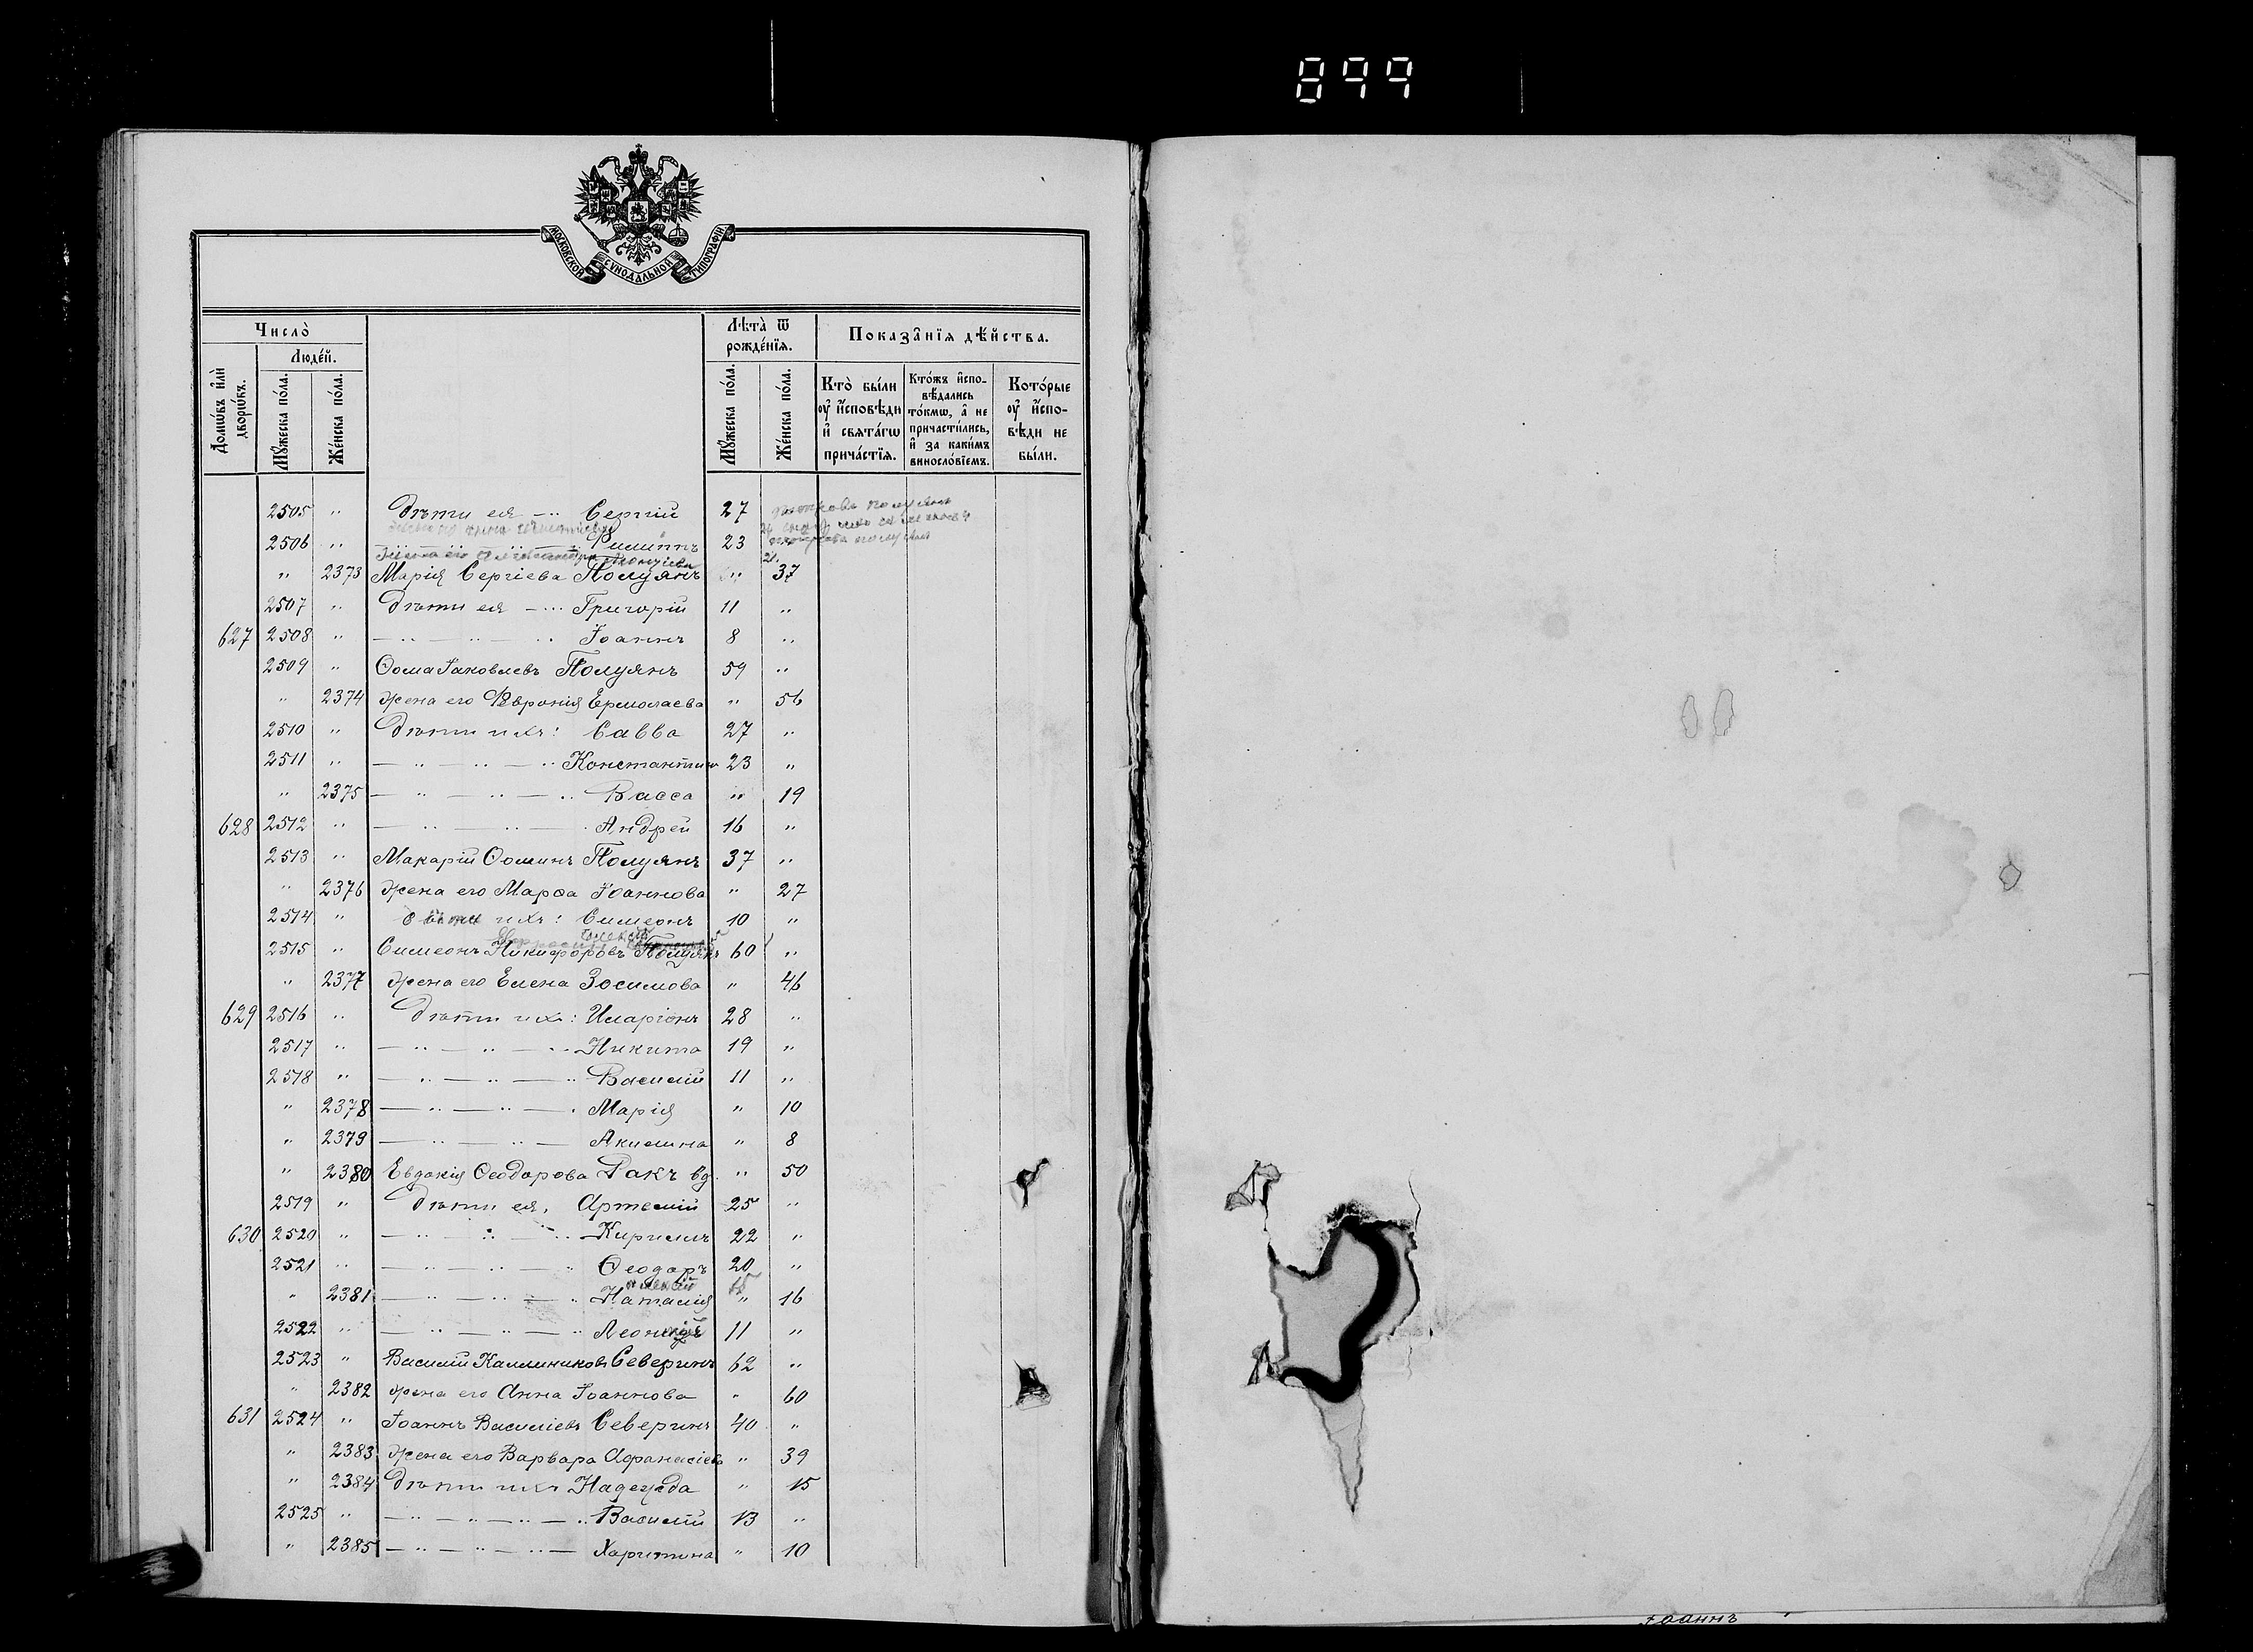 899
МОСКОВСКОЙ СУНОДАЛЬНОЙ ТИПОГРАФІИ
Число̀
Людéй.
Лѣта̀ ѿ рождéнїѧ.
Показа̑нїѧ дѣ́йства.
Домѡ́въ и҆лѝ дворѡ́въ.
Мꙋ́жеска по́ла.
Жéнска по́ла.
Мꙋ́жеска по́ла.
Жéнска по́ла.
Ктò бы́ли ᲂу҆ и҆́сповѣди и҆ свѧта́гѡ прича́стїѧ.
Кто́жъ и҆спо-вѣ́дались то́кмѡ, а҆ не причасти́лись, и҆ за каки́мъ винословїемъ.
Кото́рые ᲂу҆ и҆́спо-вѣди не бы́ли.
2505 " Дѣти ея - " Сергій 27
2506 " Филиппъ 23
" 2373 Марія Сергіева Полуянъ " 37
2507 " Дѣти ея - " Григорій 11 "
627 2508 " — " — " " Іоаннъ 8 "
2509 " Ѳома Іаковлевъ Полуянъ 59 "
" 2374 Жена его Феврония Ермолаева " 56
2510 " Дѣти ихъ: Савва 27 "
2511 " — " — " — " Константинъ 23 "
" 2375 — " — " — " Васса " 19
628 2512 " — " — " — " Андрей 16 "
2513 " Макарій Ѳоминъ Полуянъ 37 "
" 2376 Жена его Марѳа Іоаннова " 27
2514 " Дѣти ихъ: Симеонъ 10 "
2515 " Симеонъ Никифоровъ Полуянъ 60 "
" 2377 Жена его Елена Зосимова " 46
629 2516 " Дѣти ихъ: Иларіонъ 28 "
2517 " — " — " — " Никита 19 "
2518 " — " — " — " Василій 11 "
" 2378 — " — " — " Марія " 10
" 2379 — " — " — Акилина " 8
" 2380 Евдокія Ѳеодорова Ракъ вд. " 50
2519 " Дѣти ея, Артемій 25 "
630 2520 " — " — " — " Кириллъ 22 "
2521 " — " — " — " Ѳеодоръ 20 "
Алексій 15
" 2381 — " — " — " Наталія " 16
2522 " — " — " — " Леонидъ 11 "
2523 " Василій Каллиниковъ Северинъ 62 "
" 2382 Жена его Анна Іоаннова " 60
631 2524 " Іоаннъ Василіевъ Северинъ 40 "
" 2383 Жена его Варвара Аѳанасіева " 39
" 2384 Дѣти ихъ Надежда " 15
2525 " — " — " — " Василій 13 "
" 2385 — " — " — " — Харитина " 10
Іоаннъ